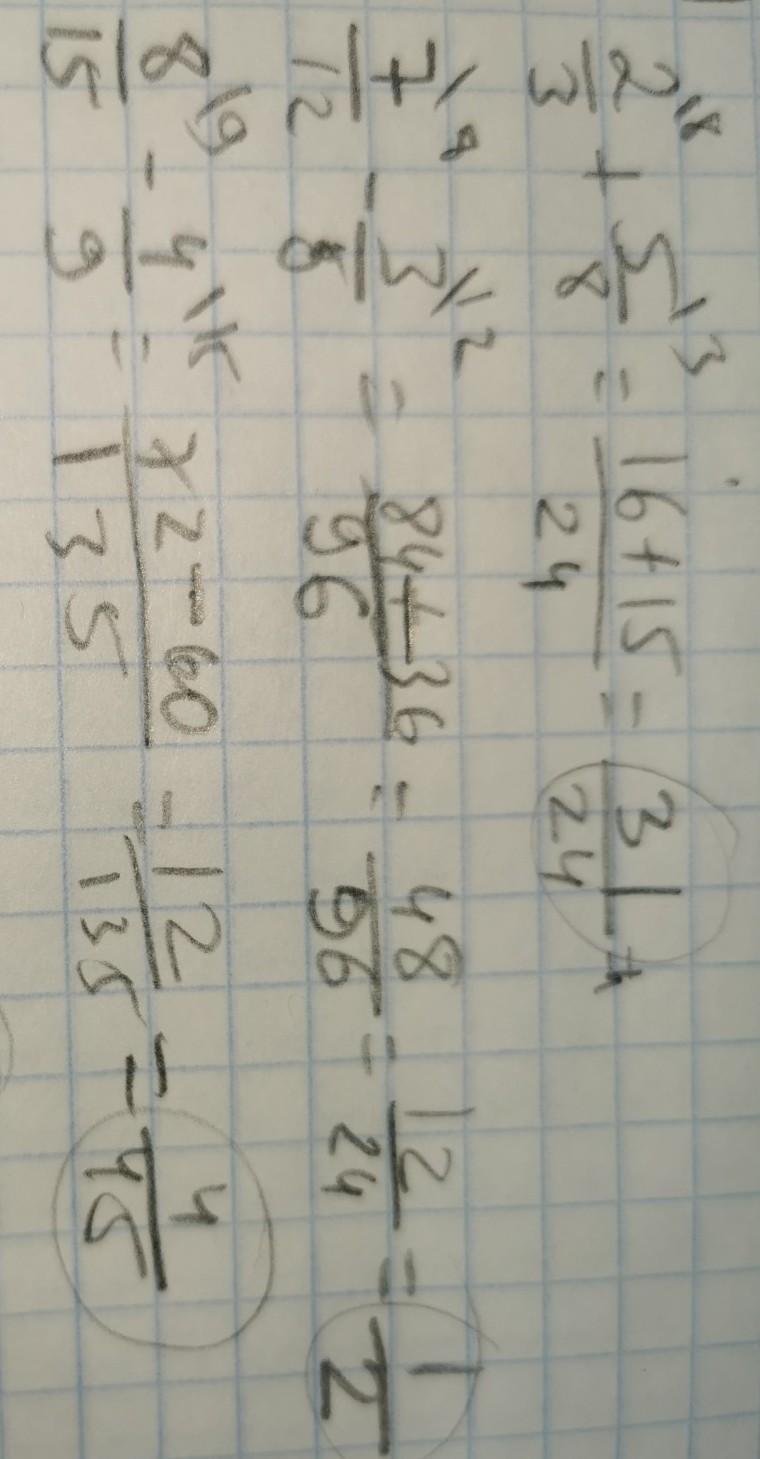 2\8/3 + 5\3/8 = 16+15/24 = 31/24
7\8/12 - 3\12/8 = 84+36/96 = 48/96 = 12/24 = 1/2
8\9/15 - 4\15/9 = 72-60/135 = 12/135 = 4/45